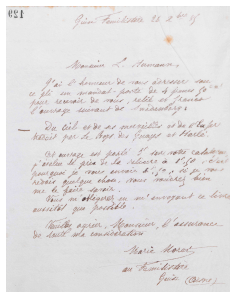 129
Guise Familistère 26 9bre 85
Monsieur L. Normann,
J'ai l'honneur de vous adresser sous
ce pli un mandat-poste de 4 francs 50 c.
pour recevoir de vous, relié et franco
l'ouvrage suivant de
Du Ciel et de ses merveilles et de l'Enfer
traduit par Le Boys des Guays et Harlé.
Cet ouvrage est porté 3 f. sur votre catalogue
j'évalue le prix de la reliure à 1f.50, c'est
pourquoi je vous envoie 4f.50, si je vous
redois quelque chose, vous voudrez bien
me le faire savoir.
Vous m'obligerez en m'envoyant ce livre
aussitôt que possible.
Veuillez agréer, Monsieur, l'assurance
de toute ma considération
Marie Moret
au Familistère
Guise (Aisne)